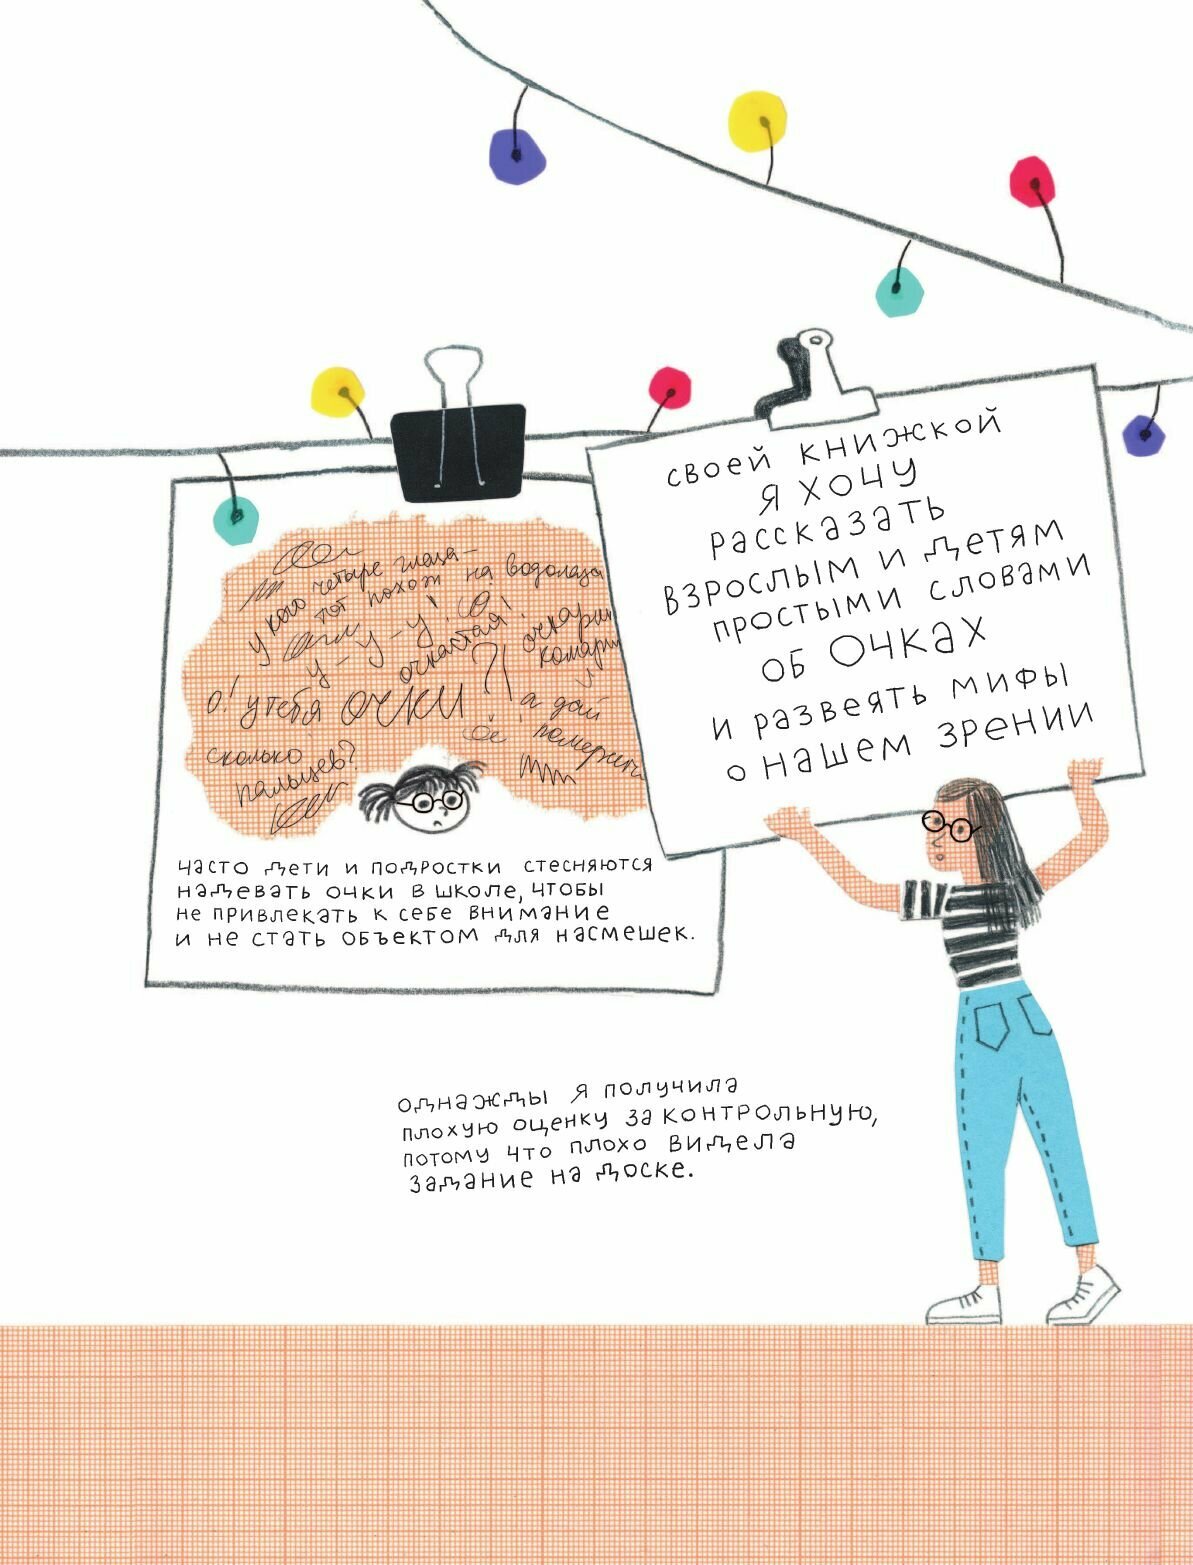 у кого четыре глаза –
тот похож на водолаза
у-у-у!
очкастая!
о! у тебя очки?!
а дай
сколько
пальцев?
часто дети и подростки стесняются
надевать очки в школе, чтобы
не привлекать к себе внимание
и не стать объектом для насмешек.
своей книжкой
я хочу
рассказать
взрослым и детям
простыми словами
об очках
и развеять мифы
о нашем зрении
однажды я получила
плохую оценку за контрольную,
потому что плохо видела
задание на доске.